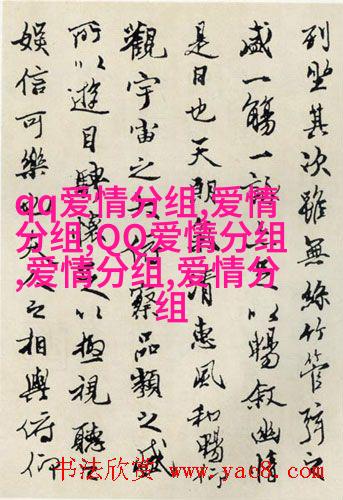 列坐其次雖無絲竹管弦之
盛一觴一詠亦足以暢敘幽情
是日也天朗氣清惠風和暢仰
觀宇宙之大俯察品類之盛
所以遊目騁懷足以極視聽之
娛信可樂也夫人之相與俯仰
qq爱情分组,爱情
分组,QQ爱情分组
,爱情分组,爱情分
组
书法欣赏 www.yac8.com